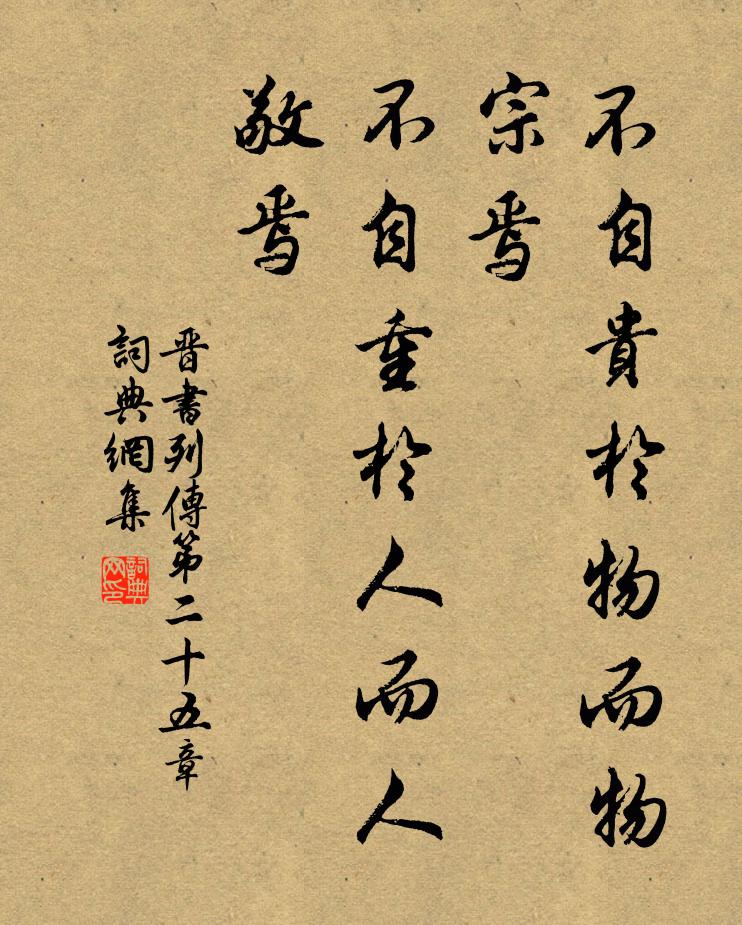 不自貴於物而物
宗焉
不自重於人而人
敬焉
晋書列傳第二十五章
詞典網集
詞典
网印